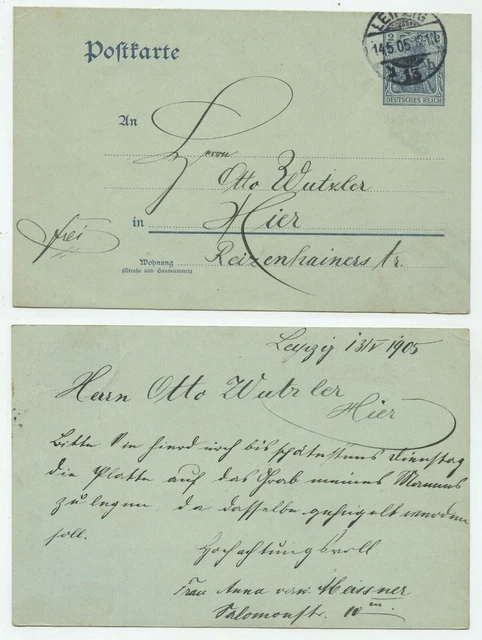 Postkarte
LEIPZIG
14.5.05
2
DEUTSCHES REICH
An
Herrn
Otto Wutzler
in Hier
frei
Wohnung
(Straße und Hausnummer)
Reizenhainerstr.
Leipzig 13/V 1905
Herrn Otto Wutzler
Hier
Bitte Sie hierd noch bis spätestens Dienstag
die Platte auf das Grab meines Mannes
zu legen da dasselbe gehügelt werden
soll.
Hochachtungsvoll
Frau Anna verw. Meissner
Salomonstr. 10 III.